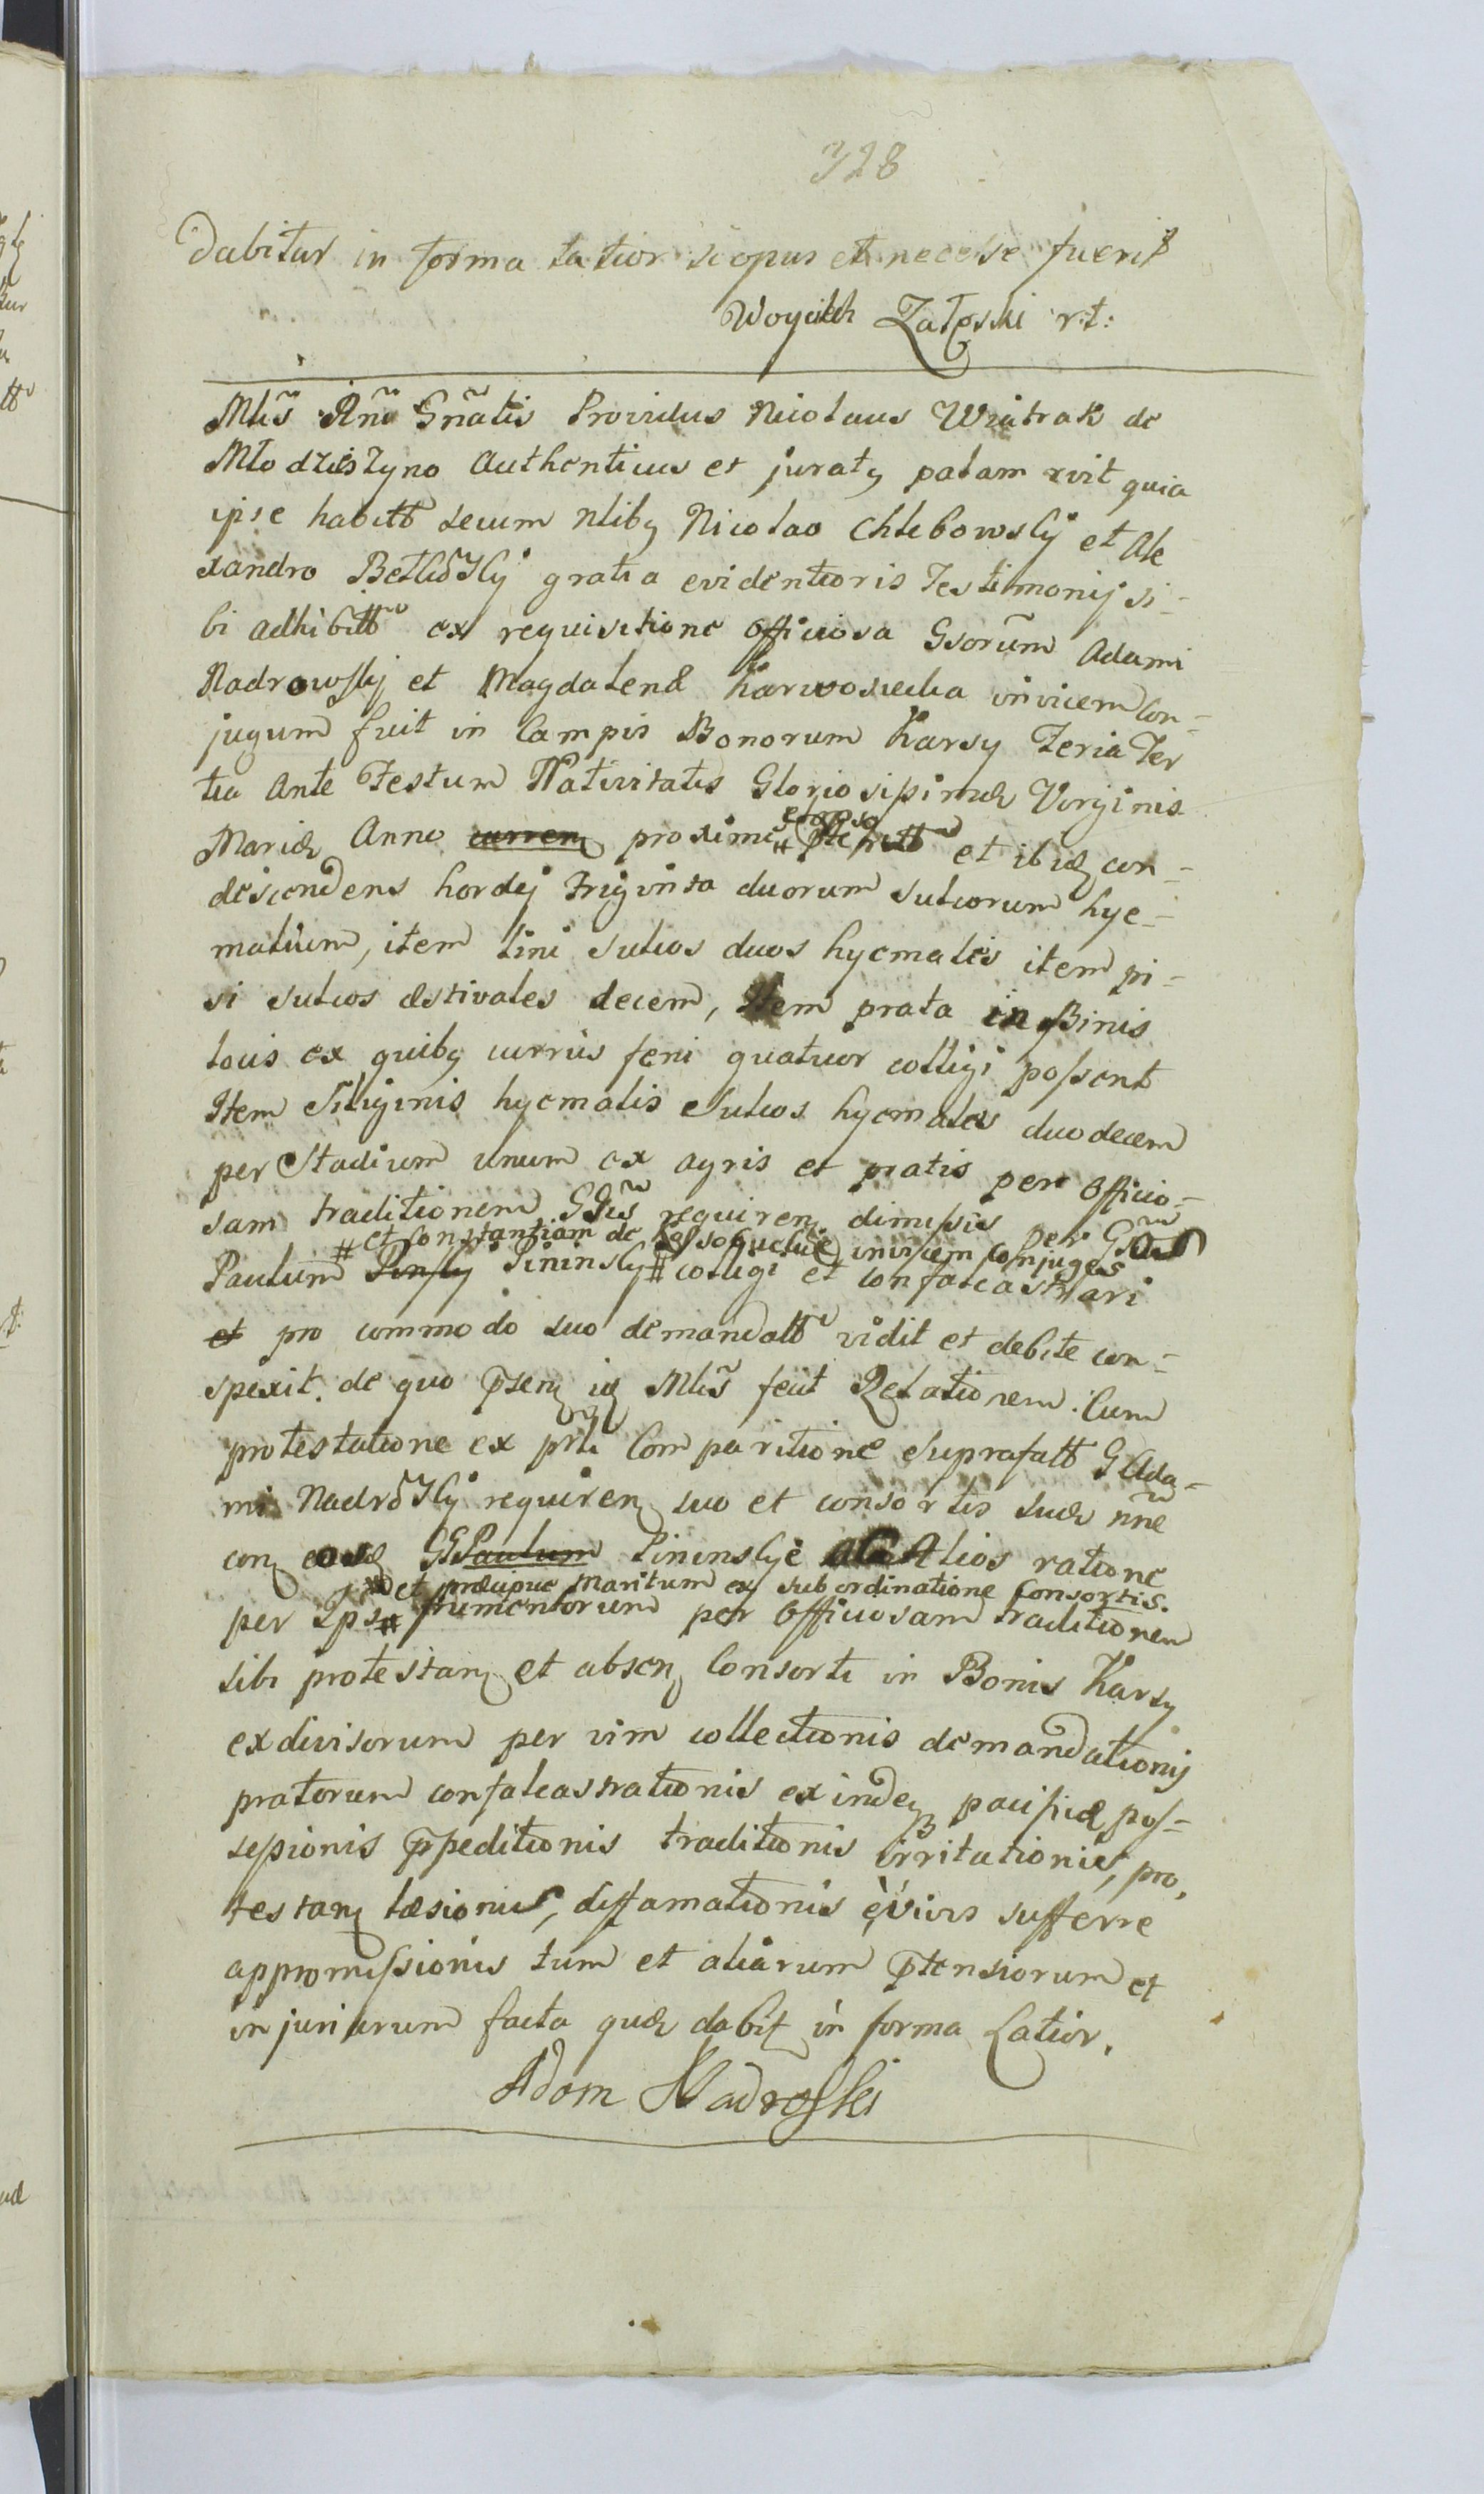 328
Dabitur in forma latior si opus et necesse fuerit
Woyciech Załęski r:t:
Mlis Rnu Gnatis Providus Nicolaus Wiatrak de
Młodzieszyno Authenticus et juraty palam rvit quia
ipse habitt secum nliby Nicolao Chlebowsky et Ale
xandro Betleÿsky gratia evidentioris Testimonij si=
bi adhibitt ex requisitione officiosa Gsorum Adami
Nadrowsky et Magdalenæ Karwosiecka invicem Con=
jugum fuit in Campis Bonorum Karsy Feria Ter
tia Ante Festum Nativitatis Gloriosissimæ Virginis
Mariæ Anno curren proxime # et ibiq con=
descendens hordej triginta duorum sulcorum hye=
malium, item lini sulcos duos hyemales item pi=
si sulcos æstivales decem, Item prata in Binis
locis ex quiby currus feni quatuor colligi possent
Item Siliginis hyemalis Sulcos hyemales duodecem
per Stadium unum ex agris et pratis per officio=
sam traditionem requiren dimissis per
# et Constantiam de invicem conjuges
Paulum Pinsky Pininsky # colligi et confalcastrari
et pro commodo suo demandatt vidit et debite con=
spexit. de quo pñsen iq Mlis fecit Relationem. Cum
protestatione ex prli Comparitione suprafatt G Ada=
mi Nadroÿsky requiren suo et consortis suæ nne
con GG Paulum Pininskye Alios ratione
et præcipue Maritum ex subordinatione Consortis.
per Ips # frumentorum per officiosam traditionem
sibi protestan et absen Consorti in Bonis Karsy
exdivisorum per vim collectionis demandationis
pratorum confalcastrationis exindeq pacificæ pos=
sessionis præpeditionis traditionis irritationis, pro,
testan læsionis, diffamationis è vivis sufferre
appromissionis tum et aliarum prætensiorum et
injuriarum facta quæ dabit in forma Latior.
Adom Nadroski